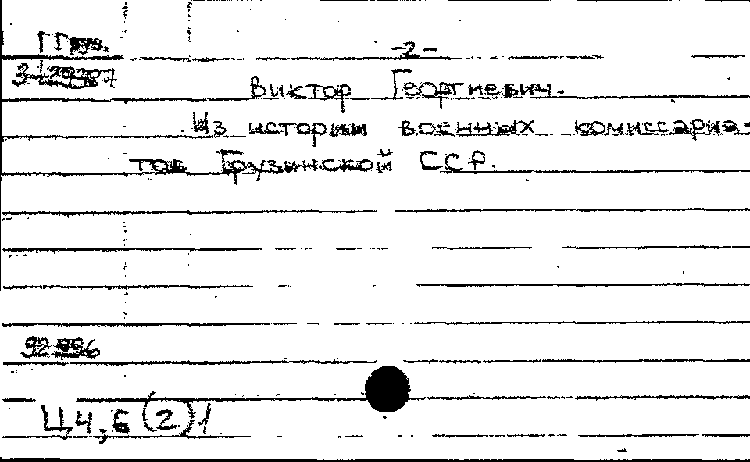 -2-
Виктор Георгиевич.
Из истории военных комиссариа-
тов Грузинской ССР.
Ц4,6(2)1